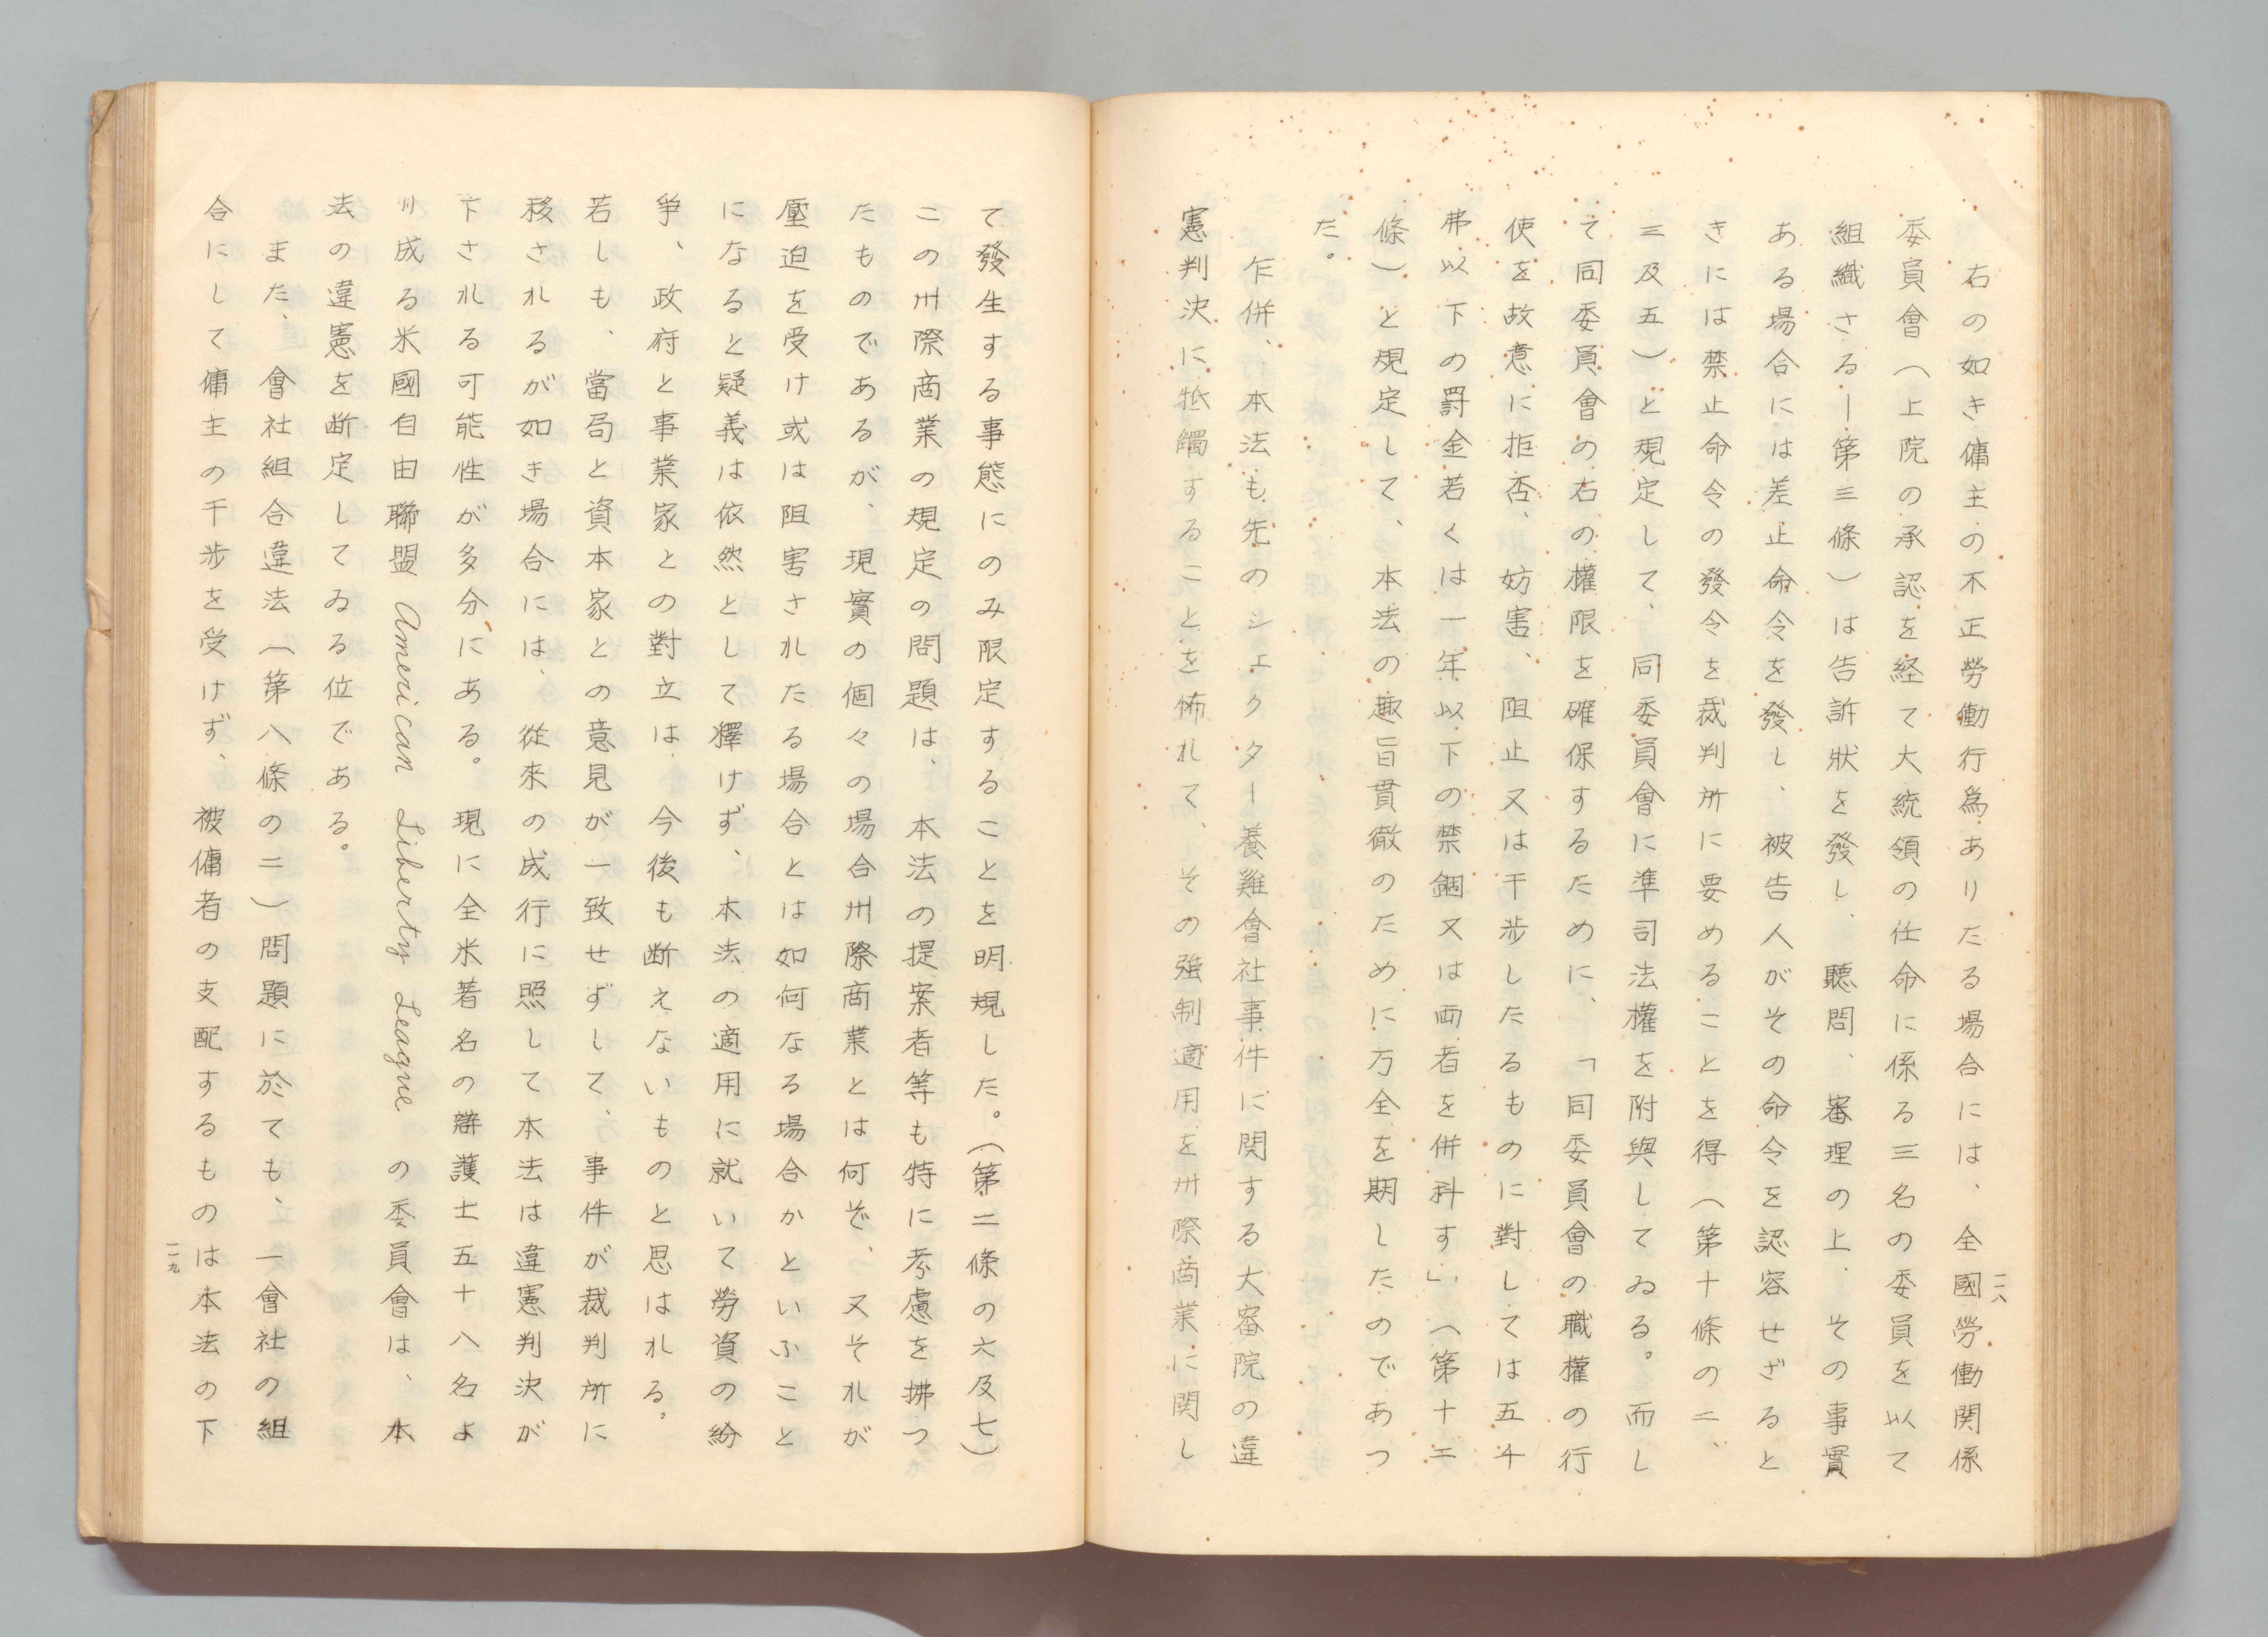 右の如き傭主の不正勞働行爲ありたる場合には、全國勞働関係
委員會(上院の承認を経て大統領の任命に係る三名の委員を以て
組織さる―第三條)は告訴狀を發し、聽問、審理の上、その事實
ある場合には差止命令を發し、被告人がその命令を認容せざると
きには禁止命令の發令を裁判所に要めることを得(第十條の二、
三及五)と規定して、同委員會に準司法權を附與してゐる。而し
て同委員會の右の權限を確保するために、「同委員會の職權の行
使を故意に拒否、妨害、阻止又は干渉したるものに對しては五千
弗以下の罰金若くは一年以下の禁錮又は両者を併科す」(第十二
條)と規定して、本法の趣旨貫徹のために万全を期したのであつ
た。
乍併、本法も先のシェクター養雞會社事件に関する大審院の違
憲判決に牴觸することを怖れて、その強制適用を州際商業に関し
一一八
て發生する事態にのみ限定することを明規した。(第二條の六及七)
この州際商業の規定の問題は、本法の提案者等も特に考慮を拂つ
たものであるが、現實の個々の場合州際商業とは何ぞ、又それが
壓迫を受け或は阻害されたる場合とは如何なる場合かといふこと
になると疑義は依然として釋けず、本法の適用に就いて勞資の紛
爭、政府と事業家との對立は、今後も断えないものと思はれる。
若しも、當局と資本家との意見が一致せずして、事件が裁判所に
移されるが如き場合には、從來の成行に照して本法は違憲判決が
下される可能性が多分にある。現に全米著名の辯護士五十八名よ
り成る米國自由聯盟 American Liberty League の委員會は、本
法の違憲を断定してゐる位である。
また、會社組合違法(第八條の二)問題に於ても、一會社の組
合にして傭主の干渉を受けず、被傭者の支配するものは本法の下
一一九